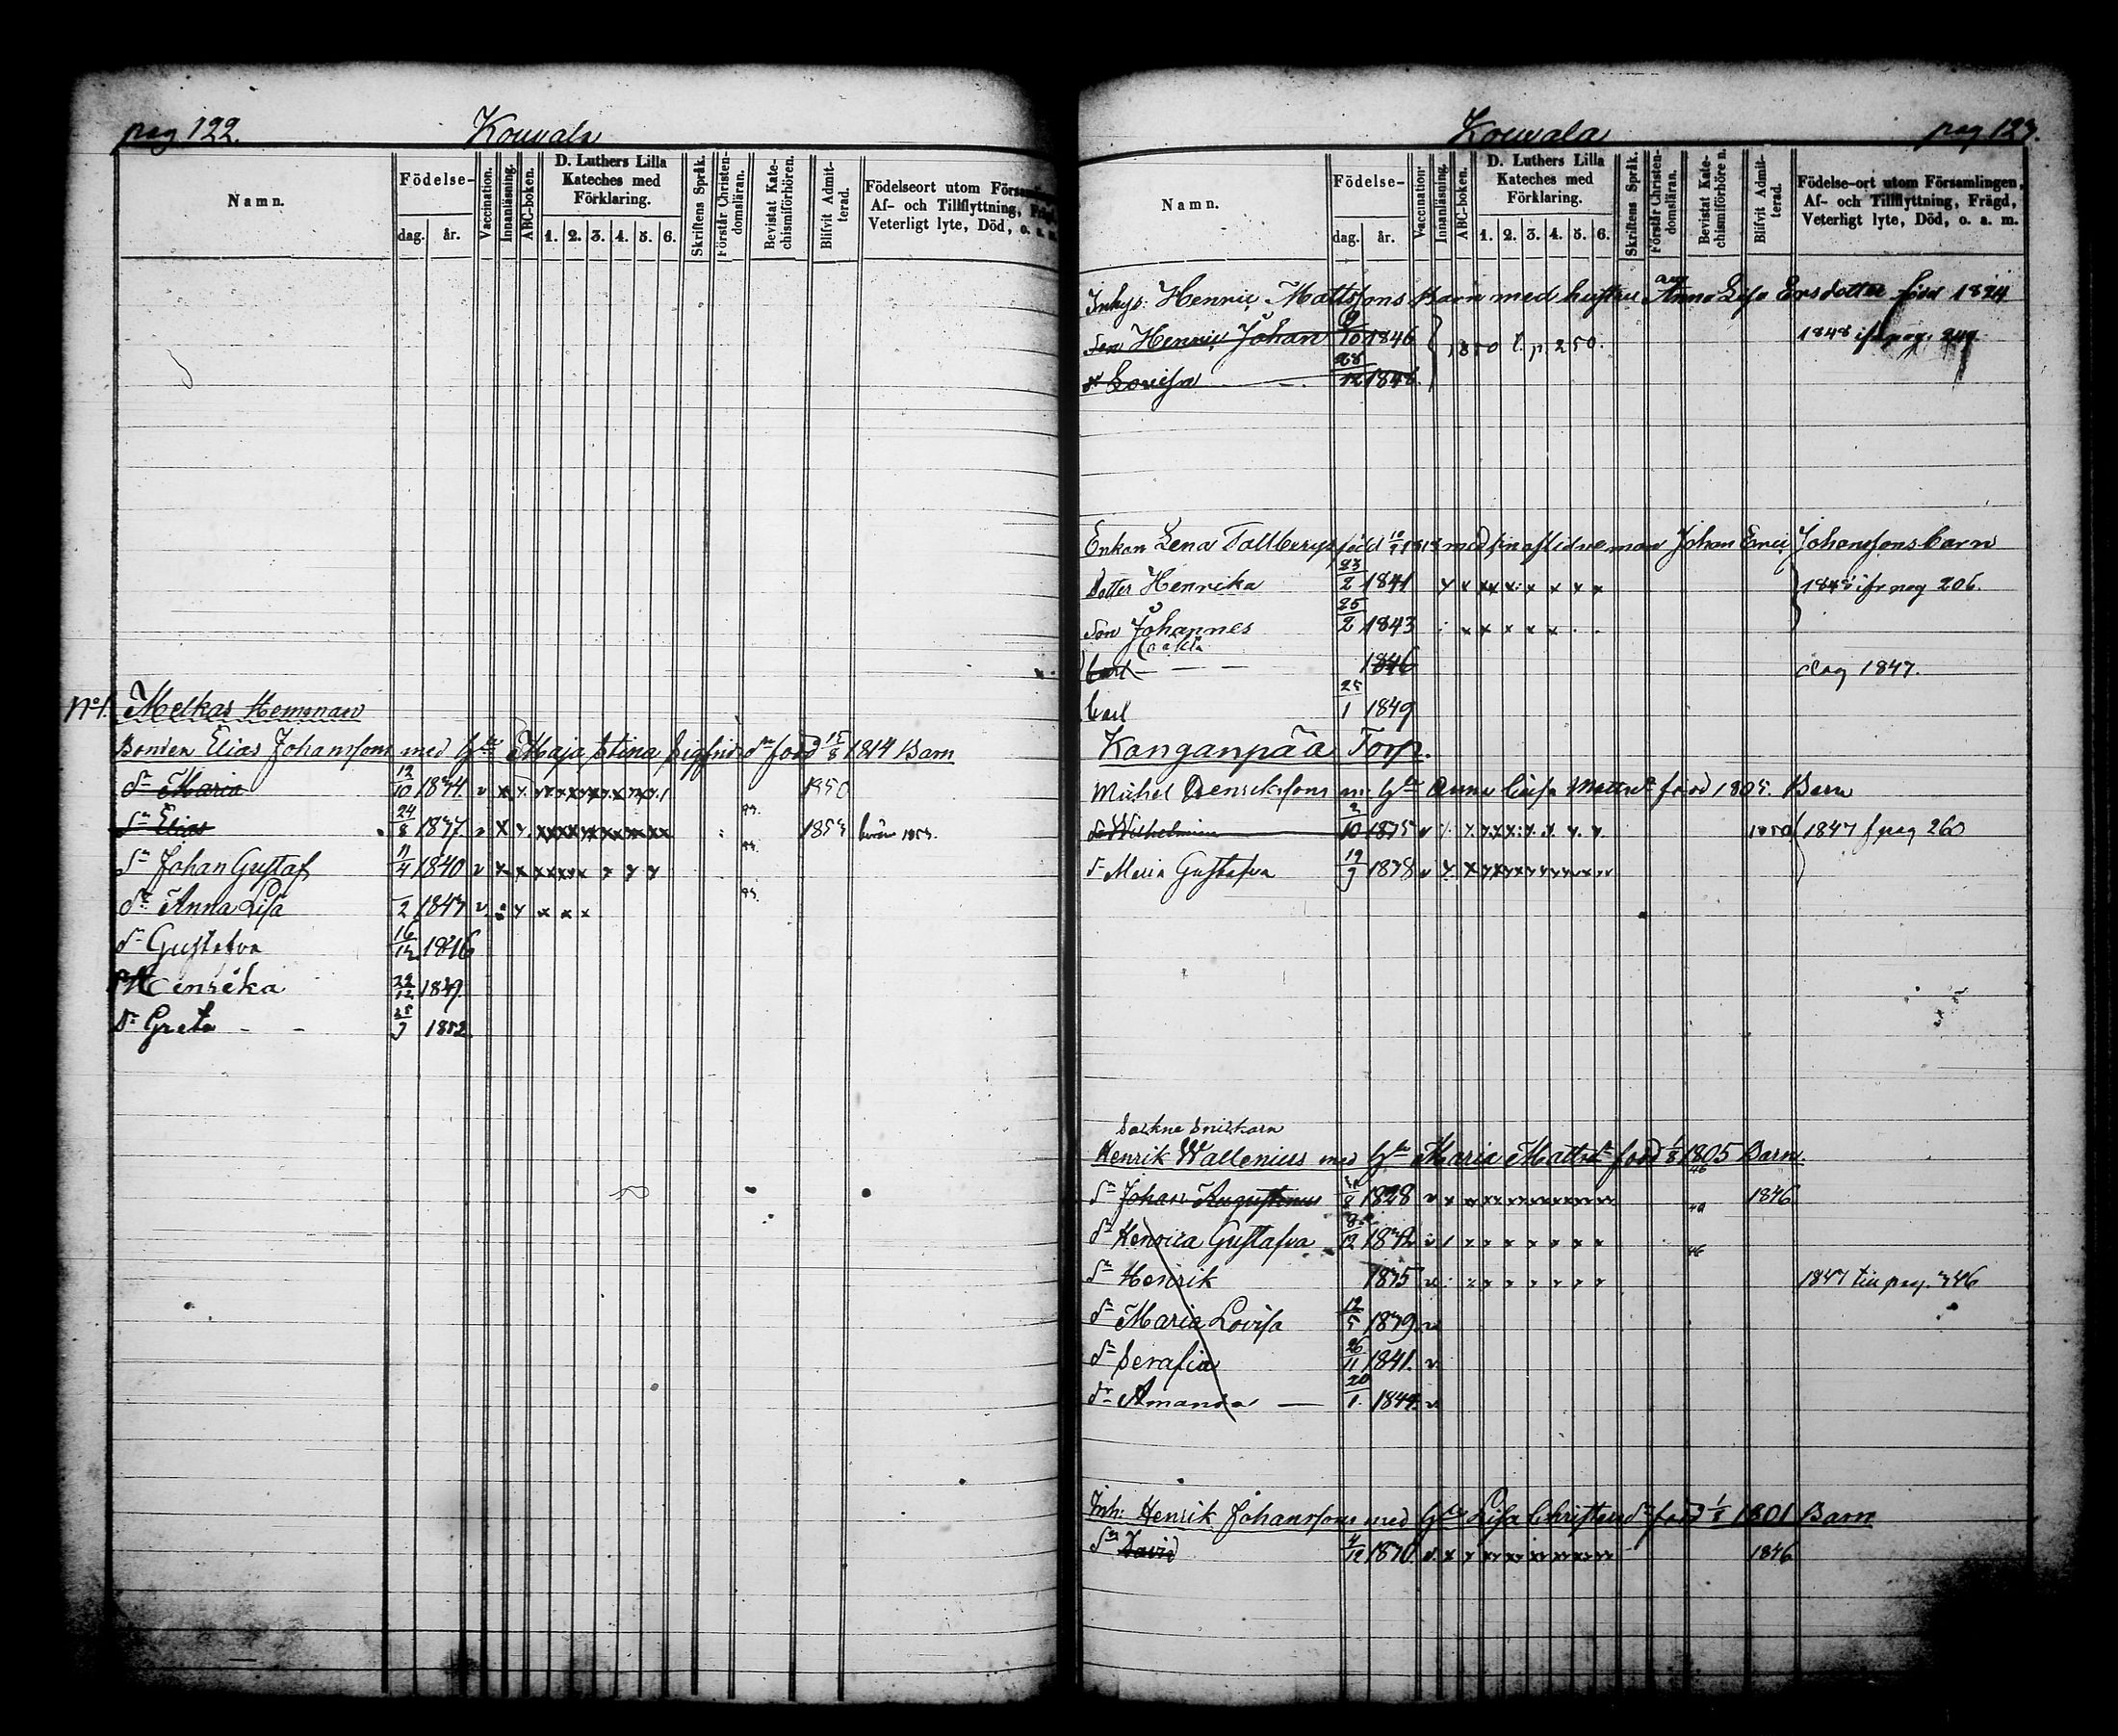 pag 122.
Kouvala
Namn.
Födelse-
dag. år.
Vaccination.
Innanläsning.
ABC-boken.
D. Luthers Lilla Kateches med Förklaring.
1. 2. 3. 4. 5. 6.
Skriftens Språk.
Förstår Christendomsläran.
Bevistat Katechismiförhören.
Blifvit Admitterad.
Födelseort utom Församlingen,
Af- och Tillflyttning, Frägd,
Veterligt lyte, Död, o. a. m.
No 1. Melkas Hemman
Bonden Elias Johanssons med Hu Maja Stina Sigfridsdr född 15/8 1814 Barn
Dr Maria 12/10 1834 v 1850
Sn Elias 24/8 1837 v 1853
Sn Johan Gustaf 11/4 1840 v
Dr Anna Lisa 2 1843 v
Dr Gustafva 16/12 1846
Dr Henrika 22/12 1849
Dr Greta 1852
Kouvala
pag 123.
Namn.
Födelse-
dag. år.
Vaccination.
Innanläsning.
ABC-boken.
D. Luthers Lilla Kateches med Förklaring.
1. 2. 3. 4. 5. 6.
Skriftens Språk.
Förstår Christendomsläran.
Bevistat Katechismiförhören.
Blifvit Admitterad.
Födelse-ort utom Församlingen,
Af- och Tillflyttning, Frägd,
Veterligt lyte, Död, o. a. m.
Inhys: Henric Mattssons Barn med hustru Anna Lisa Ersdotter född 1824
Son Henric Johan 9/10 1846 1850 t. p. 250. 1848 ifr pag. 249
Dr Lovisa 28/12 1848
Enkan Lena Tallbergs född 1818 med sin aflidne man Johan Eric Johanssons barn
Dotter Henrika 23/2 1841 1848 ifr pag 206.
Son Johannes 25/2 1843
Carl 1846 dog 1847.
Carl 25/1 1849
Kanganpää Torp.
Michel Henrikssons m. Hu Anna Caisa Mattsdr född 1805. Barn
Dr Wilhelmina 2/10 1835 v 1850 1847 f pag 260
Dr Maria Gustafva 19/9 1838 v
Sockne Snickarn
Henrik Wallenius med Hu Maria Mattsdr född 1/8 1805 Barn
Sn Johan Augustinus 1828 v 1846
Dr Henrica Gustafva 8/12 1832 v
Sn Henrik 1835 v 1847 till pag. 346
Dr Maria Lovisa 12/5 1839 v
Dr Serafia 26/11 1841. v
Dr Amanda 20/1. 1844 v
Inh: Henrik Johanssons med Hu Lisa Christersdr född 1801 Barn
Sn David 1830 v 1846